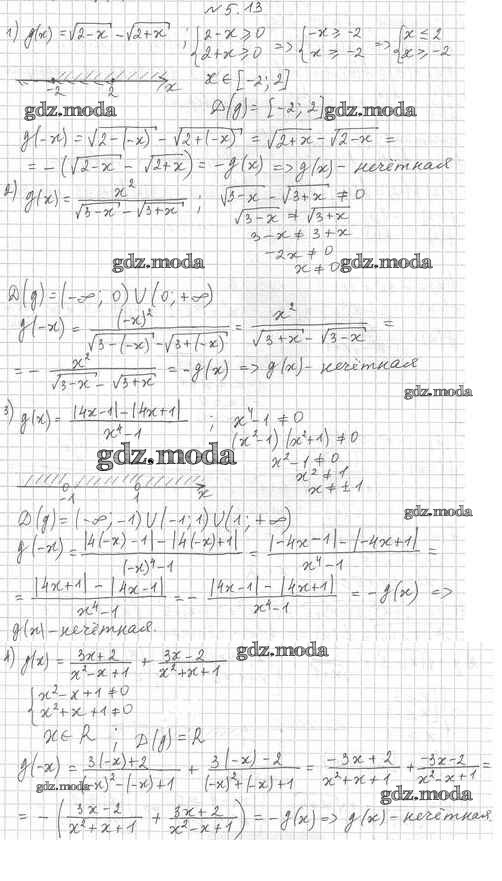 № 5.13
1) g(x) = √(2-x) - √(2+x) ; {2-x ≥ 0 2+x ≥ 0 => {-x ≥ -2 x ≥ -2 => {x ≤ 2 x ≥ -2
-2 2 x x ∈ [-2; 2]
gdz.moda D(g) = [-2; 2] gdz.moda
g(-x) = √(2-(-x)) - √(2+(-x)) = √(2+x) - √(2-x) =
= -(√(2-x) - √(2+x)) = -g(x) => g(x) - нечётная
2) g(x) = x²/(√(3-x) - √(3+x)) ; √(3-x) - √(3+x) ≠ 0
√(3-x) ≠ √(3+x)
3-x ≠ 3+x
-2x ≠ 0
gdz.moda x ≠ 0 gdz.moda
D(g) = (-∞; 0) ∪ (0; +∞)
g(-x) = (-x)²/(√(3-(-x)) - √(3+(-x))) = x²/(√(3+x) - √(3-x)) =
= - x²/(√(3-x) - √(3+x)) = -g(x) => g(x) - нечётная
gdz.moda
3) g(x) = (|4x-1| - |4x+1|)/(x⁴-1) ; x⁴-1 ≠ 0
(x²-1)(x²+1) ≠ 0
gdz.moda x²-1 ≠ 0
x² ≠ 1
x ≠ ±1
-1 1 x
gdz.moda
D(g) = (-∞; -1) ∪ (-1; 1) ∪ (1; +∞)
g(-x) = (|4(-x)-1| - |4(-x)+1|)/((-x)⁴-1) = (|-4x-1| - |-4x+1|)/(x⁴-1) =
= (|4x+1| - |4x-1|)/(x⁴-1) = - (|4x-1| - |4x+1|)/(x⁴-1) = -g(x) =>
g(x) - нечётная.
gdz.moda
4) g(x) = (3x+2)/(x²-x+1) + (3x-2)/(x²+x+1)
{x²-x+1 ≠ 0
x²+x+1 ≠ 0
x ∈ R ; D(g) = R
g(-x) = (3(-x)+2)/((-x)²-(-x)+1) + (3(-x)-2)/((-x)²+(-x)+1) = (-3x+2)/(x²+x+1) + (-3x-2)/(x²-x+1) =
gdz.moda gdz.moda
= -((3x-2)/(x²+x+1) + (3x+2)/(x²-x+1)) = -g(x) => g(x) - нечётная.